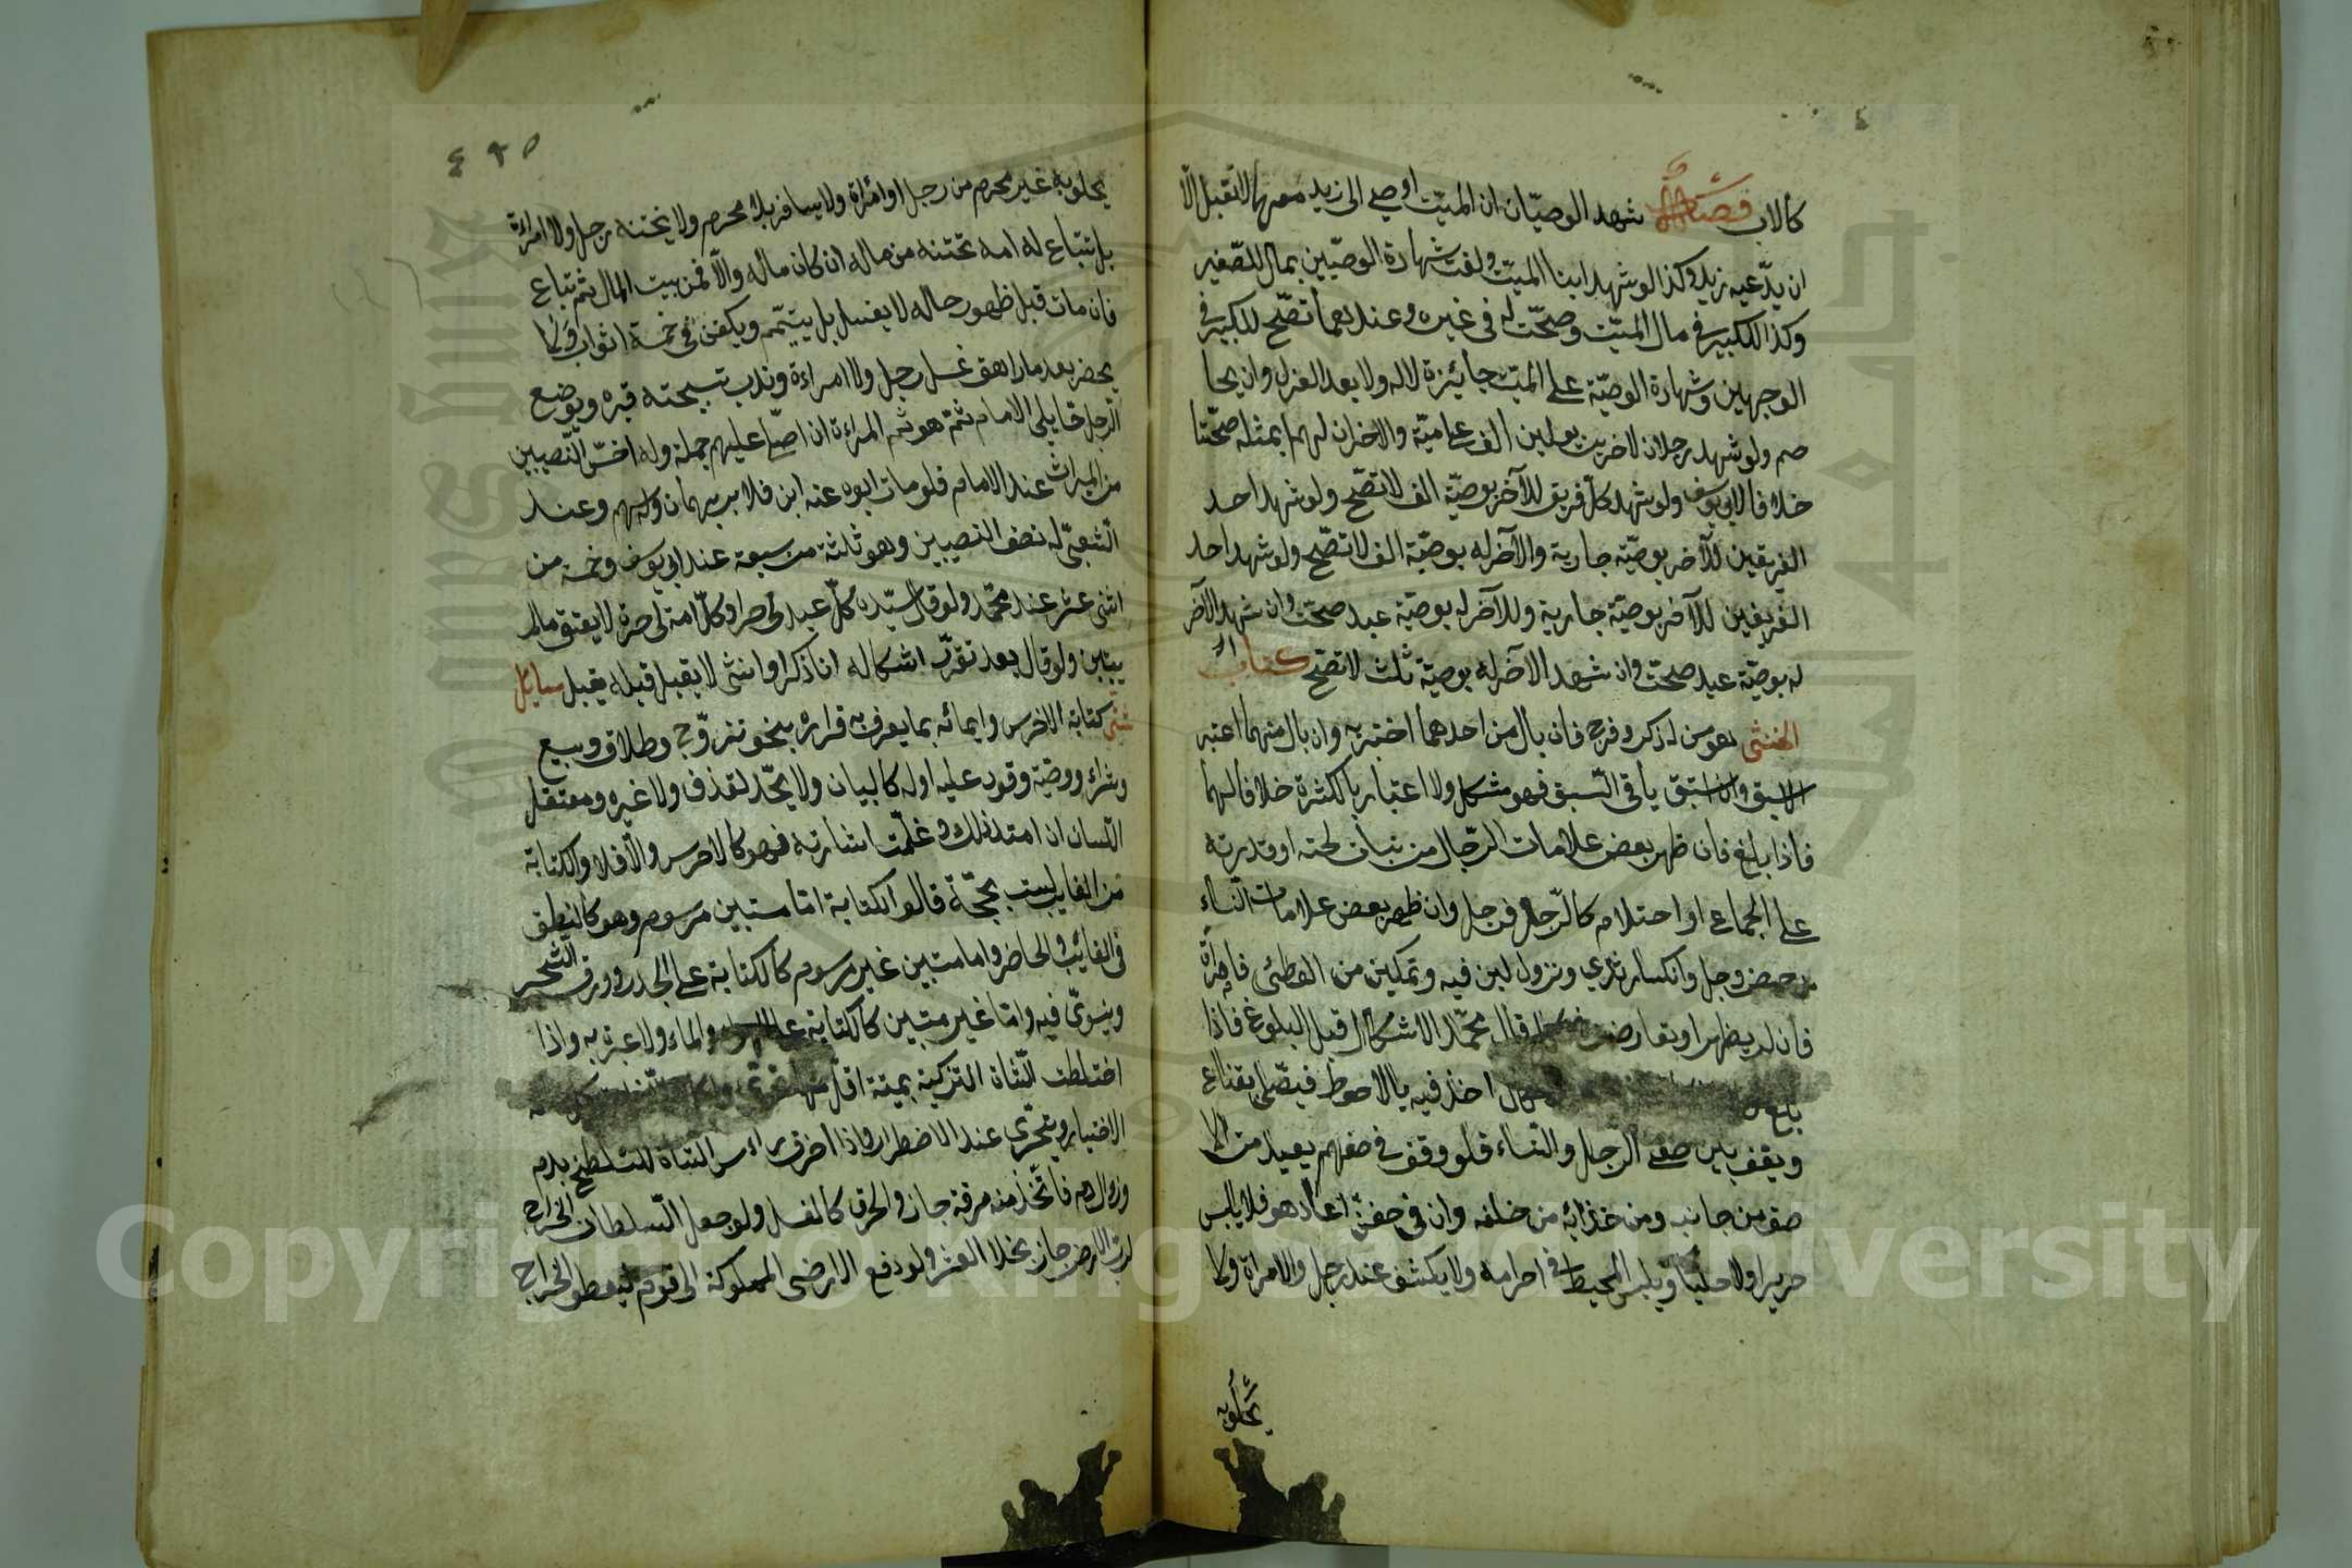 كالاب فصل شهد الوصيّان ان الميّت اوصى الى زيد معهما لا تقبل الّا
ان يدّعيه زيد وكذا لو شهد ابنا الميّت ولغت شهادة الوصيّين بمال للصّغير
وكذا للكبير في مال الميّت وصحّت له في غيره وعندهما تصّح للكبير في
الوجهين وشهادة الوصيّة على الميّت جائزة لا له ولا بعد العزل وان
صم ولو شهد رجلان لاخرين بدين الف على ميّة والاخران لهما بمثله صحّتا
خلافا لابي يوسف ولو شهد كلّ فريق للآخر بوصيّة الف لا تصّح ولو شهد احد
الفريقين للآخر بوصيّة جارية والآخر له بوصيّة الف لا تصّح ولو شهد احد
الفريقين للآخر بوصيّة جارية وللآخر له بوصيّة عبد صحّت وان شهد الآخر
له بوصيّة عبد صحّت وان شهد الآخر له بوصيّة ثلث لا تصّح كتاب
الخنثى هو من له ذكر وفرج فان بال من احدهما اختبر به وان بال منهما اعتبر
الاسبق وان استبق يأتي السّبق فهو مشكل ولا اعتبار بالكثرة خلافا لهما
فاذا بلغ فان ظهر بعض علامات الرّجال من نبات لحته او قدرته
على الجماع او احتلام كالرّجل فرجل وان ظهر بعض علامات النّساء
من حيض وحبل وانكسار ثدي ونزول لبن فيه وتمكين من الوطئ فامرأة
فان لم يظهر او تعارض قال محمّد الاشكال قبل البلوغ فاذا
بلغ اخذ فيه بالاحوط فيصّلى بقناع
ويقف بين صفى الرّجال والنّساء فلو وقف في صفهم يعيد من
صق من جانب ومن خذائه من خلفه وان في صفهنّ اعاد هو فلا يلبس
حريرا ولا حليّا ويلبس المخيط في احرامه ولا يكشف عند رجل ولا امراة ولا
يخلو به
٤٩٥
يخلو به غير محرم من رجل او امراة ولا يسافر بلا محرم ولا يختنه رجل ولا امراءة
بل تبتاع له امه تختنه من ماله ان كان ماله والّا فمن بيت المال ثم تباع
فان مات قبل ظهور حاله لا يغسل بل يتيّمم ويكفن في خمسة اثواب ولا
يحضر بعد ما راهق غسل رجل ولا امراءة وندب تسبيحته قبره ويوضع
الرّجل مما يلى الامام ثمّ هو ثم المراءة ان اصلّى عليهم جملة وله اخسّ النّصيبين
من الميراث عند الامام فلو مات ابوه عنه ابن فلابن سهمان وله سهم وعند
الشّعبىّ له نصف النصيبين وهو ثلثة من سبعة عند ابي يوسف وخمسة من
اثنى عشر عند محمّد ولو قال سيّده كلّ عبد لى حر او كلّ امة لى حرة لا يعتق مالم
يبّين ولو قال بعد تقرّر اشكاله انا ذكر او انثى لا يقبل قبله يقبل مسايل
شتّى كتابة الاخرس وايمائه بما يعرف به قراره بنحو تزوّج وطلاق وبيع
وشراء ووصيّة وقود عليه اوله كالبيان ولا يحّد لقذف ولا غيره ومعتقل
اللّسان ان امتد ذلك وعلمت اشارته فهو كالاخرس والّا فلا والكتابة
من الغايب ليست بحجّة قالوا الكتابة امّا مستبين مرسوم وهو كالنطق
في الغائب والحاضر واما مستبين غير مرسوم كالكتابة على الجدر وورق الشّجر
وينوىّ فيه وامّا غير مستبين كالكتابة على والماء ولا عبرة به واذا
اختلطت الشّاة التزكية بميتة اقلّ منها
الاختيار ويتحّرى عند الاضطرار واذا احرق راءس الشاة المتلطّخ بدم
وزال دم فاتّخذ منه مرقة جاز والحرق كالغسل ولو جعل السّلطان الخراج
لربّ الارض جاز بخلاف العشر ولو دفع الارضى المملوكة الى قوم ليعطو الخراج
Copyright © King Saud University